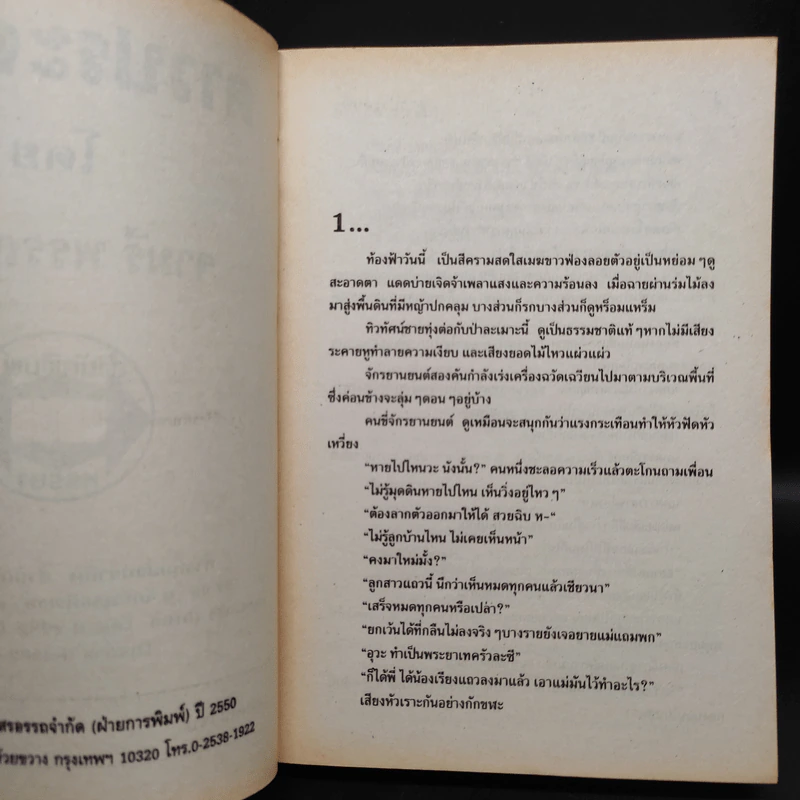 โดย
ศรอรรถจำกัด (ฝ่ายการพิมพ์) ปี 2550
ห้วยขวาง กรุงเทพฯ 10320 โทร.0-2538-1922
1...
ท้องฟ้าวันนี้ เป็นสีครามสดใสเมฆขาวฟ่องลอยตัวอยู่เป็นหย่อม ๆดู
สะอาดตา แดดบ่ายเจิดจ้าเพลาแสงและความร้อนลง เมื่อฉายผ่านร่มไม้ลง
มาสู่งพื้นดินที่มีหญ้าปกคลุม บางส่วนก็รกบางส่วนก็ดูหร็อมแหร็ม
ทิวทัศน์ชายทุ่งต่อกับป่าละเมาะนี้ ดูเป็นธรรมชาติแท้ ๆหากไม่มีเสียง
ระคายหูทำลายความเงียบ และเสียงยอดไม้ไหวแผ่วแผ่ว
จักรยานยนต์สองคันกำลังเร่งเครื่องฉวัดเฉวียนไปมาตามบริเวณพื้นที่
ซึ่งค่อนข้างจะลุ่ม ๆดอน ๆอยู่บ้าง
คนขี่จักรยานยนต์ ดูเหมือนจะสนุกกันว่าแรงกระเทือนทำให้หัวฟัดหัว
เหวี่ยง
“หายไปไหนวะ นังนั้น?” คนหนึ่งชะลอความเร็วแล้วตะโกนถามเพื่อน
“ไม่รู้มุดดินหายไปไหน เห็นวิ่งอยู่ไหว ๆ”
“ต้องลากตัวออกมาให้ได้ สวยฉิบ ห-“
“ไม่รู้ลูกบ้านไหน ไม่เคยเห็นหน้า”
“คงมาใหม่มั้ง?”
“ลูกสาวแถวนี้ นึกว่าเห็นหมดทุกคนแล้วเชียวนา”
“เสร็จหมดทุกคนหรือเปล่า?”
“ยกเว้นได้ที่กลืนไม่ลงจริง ๆบางรายยังเจอยายแม่แถมพก”
“อุวะ ทำเป็นพระยาเทครัวละซี”
“ก็ได้พี่ ได้น้องเรียงแถวลงมาแล้ว เอาแม่มันไว้ทำอะไร?”
เสียงหัวเราะกันอย่างกักขฬะ